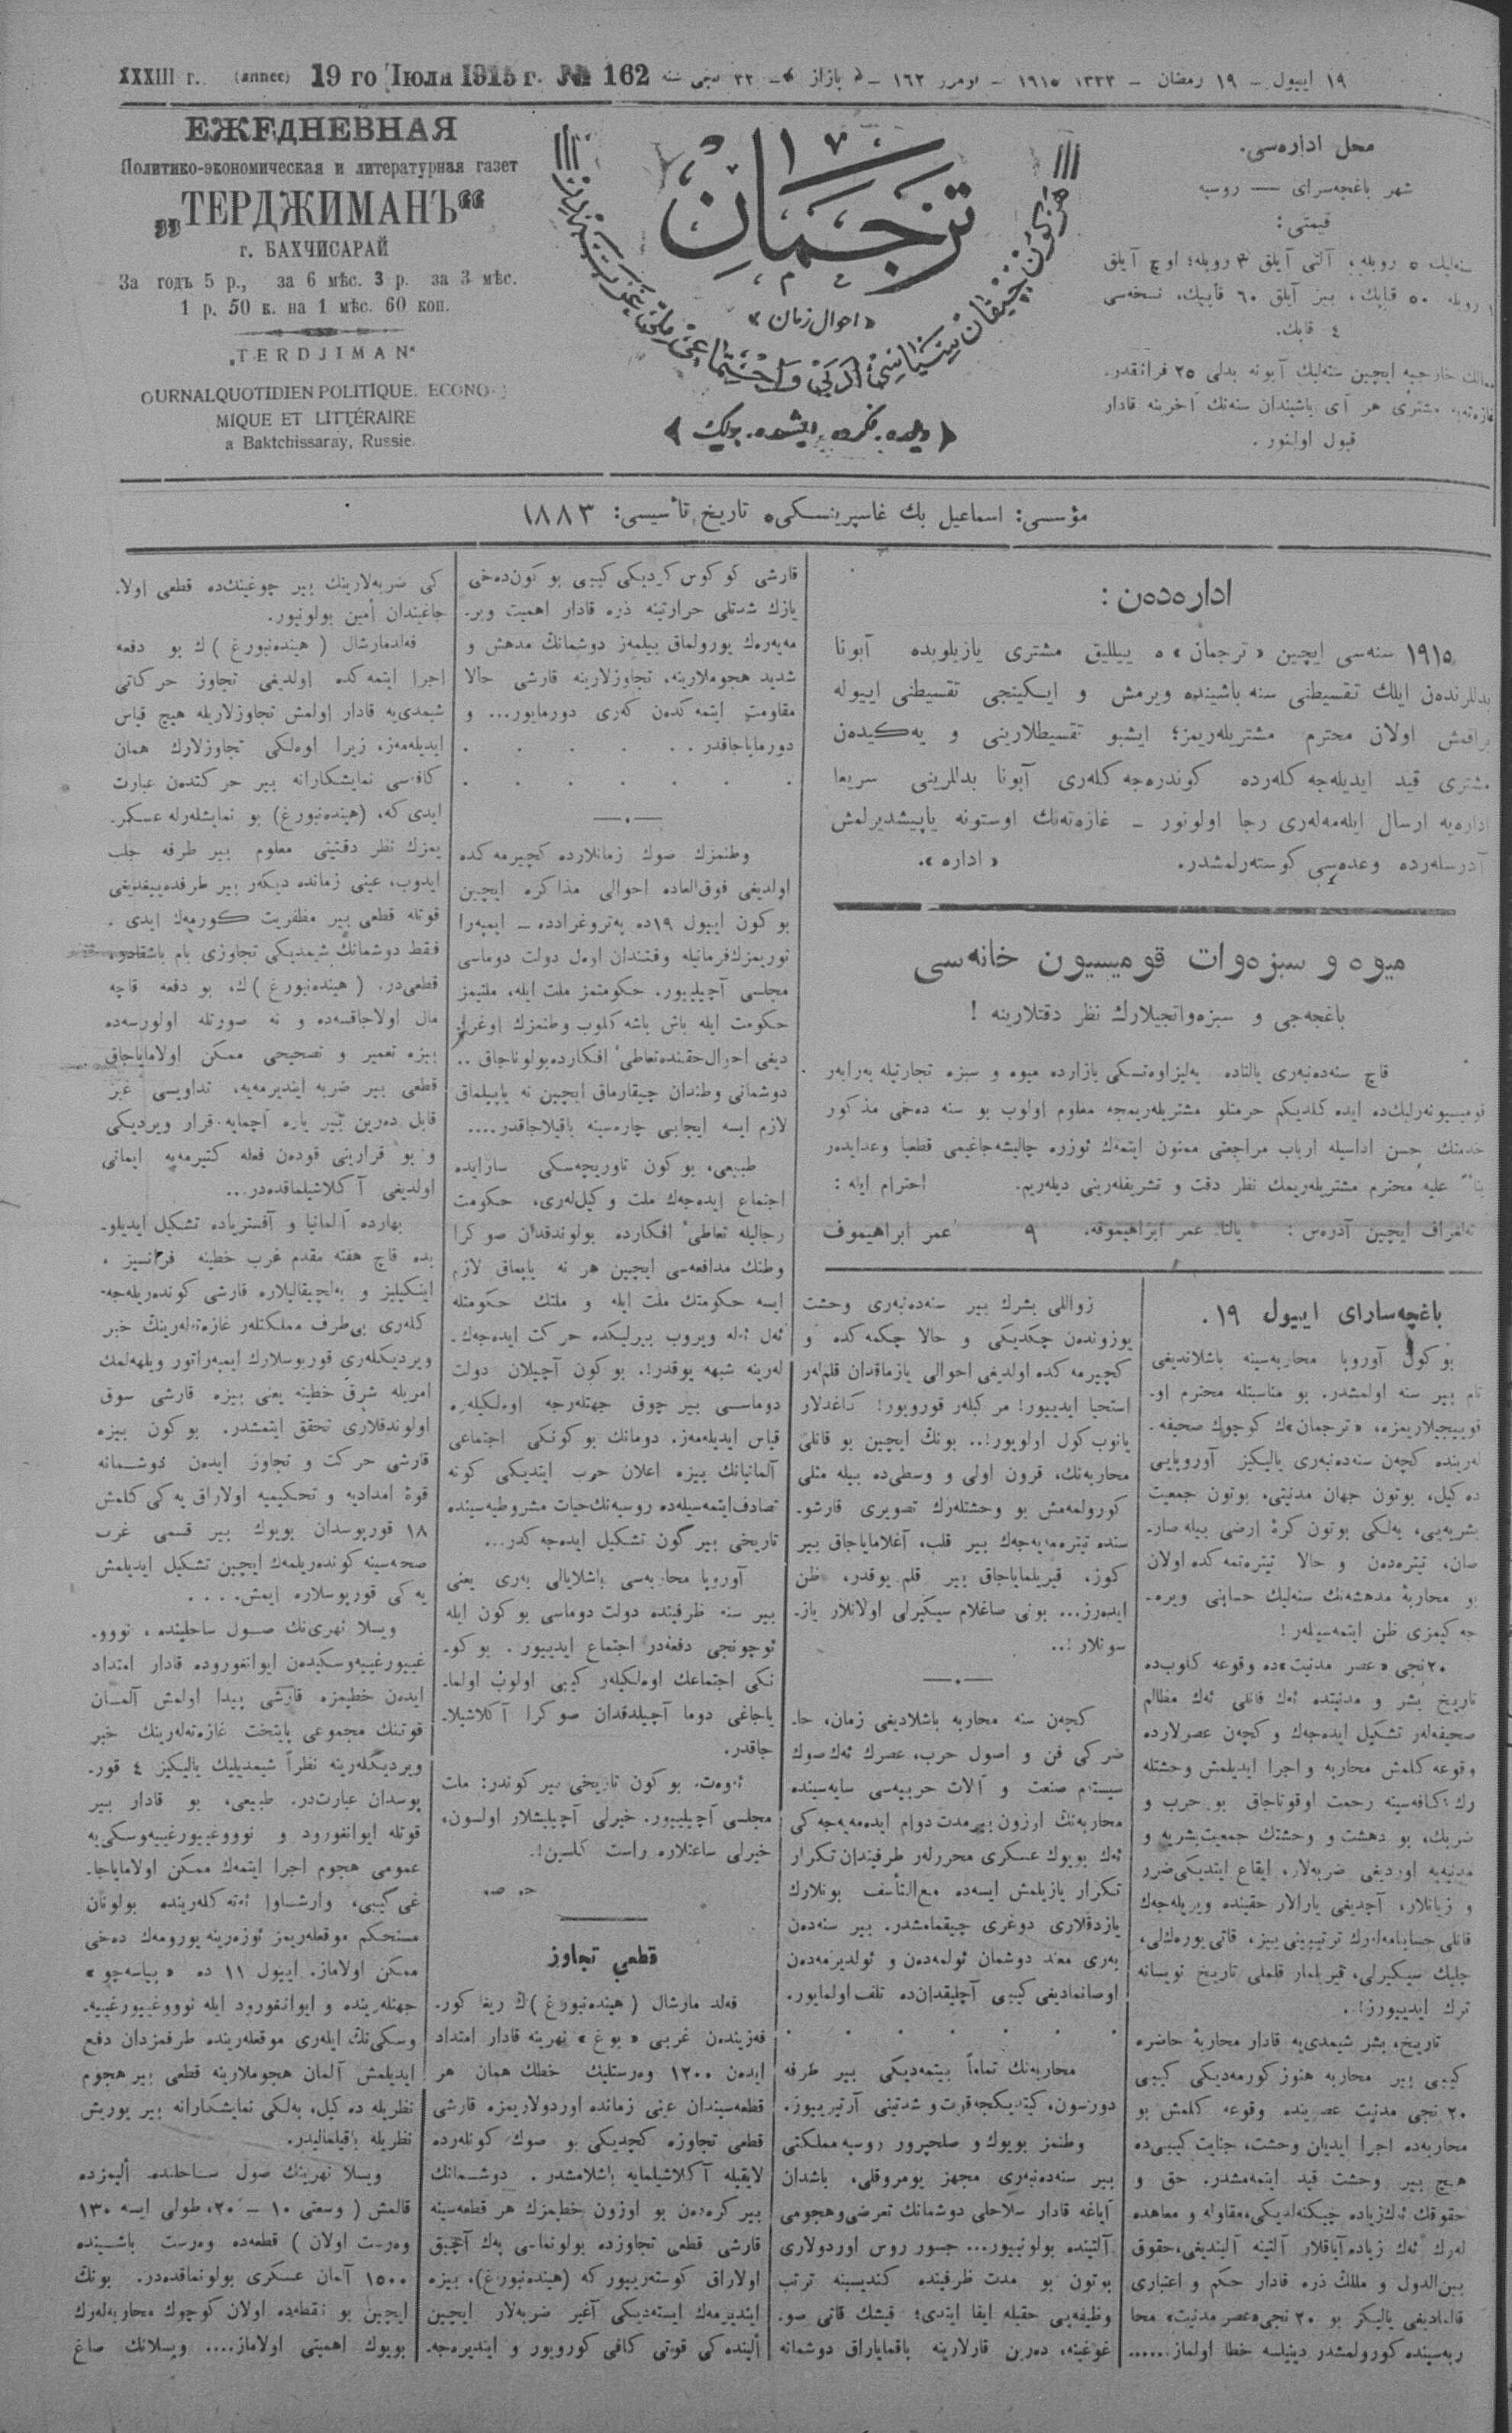 XXXIII г. (annee) 19 го Іюля 1915 г. № 162 ١٩ اييول – ١٩ رمضان – ١٣٣٣ ١٩١٥ – نومرر ١٦٢ –« بازار »– ٣٣ نجی سنه
ЕЖЕДНЕВНАЯ
Политико-экономическая и литературная газет
„ТЕРДЖИМАНЪ“
г. БАХЧИСАРАЙ
За годъ 5 р., за 6 мѣс. 3 р. за 3 мѣс.
1 р. 50 к. на 1 мѣс. 60 коп.
„TERDJIMAN“
OURNAL QUOTIDIEN POLITIQUE. ECONO-
MIQUE ET LITTÉRAIRE
a Baktchissaray, Russie.
ترجمان
« احوال زمان »
« ديلده، فكرده، ايشده، برلك »
محل اداره‌سی.
شهر باغچه‌سرای — روسيه
قيمتی :
سنه‌ليك ٥ روبله، آلتی آيلق ٣ روبله؛ اوچ آيلق
١ روبله ٥٠ قاپك، بير آيلق ٦٠ قاپيك، نسخه‌سی
٤ قاپك.
ممالك خارجيه ايچين سنه‌ليك آبونه بدلی ٢٥ فرانقدر.
غازه‌ته‌يه مشتری هر آی باشيندان سنه‌نك آخرينه قادار
قبول اولنور .
مؤسسی: اسماعيل بك غاسپرينسكی، تاريخ تأسيسی: ١٨٨٣
اداره‌ده‌ن :
١٩١٥ سنه‌سی ايچين « ترجمان » ه ييلليق مشتری يازيلوبده آبونا
بدللرنده‌ن ايلك تقسيطنی سنه باشينده ويرمش و ايكينجی تقسيطنی اييوله
براقمش اولان محترم مشتريله‌ريمز؛ ايشبو تقسيطلارينی و يه‌كيده‌ن
مشتری قيد ايديله‌جه كله‌رده كوندره‌جه كله‌ری آبونا بدللرينی سريعا
اداره‌يه ارسال ايله‌مه‌له‌ری رجا اولونور – غازه‌ته‌نك اوستونه ياپيشديرلمش
آدرسله‌رده وعده‌سی كوسته‌رلمشدر. « اداره ».
ميوه و سبزه‌وات قوميسيون خانه‌سی
باغچه‌جی و سبزه‌واتجيلارك نظر دقتلارينه !
قاچ سنه‌ده‌نبه‌ری يالتاده يه‌ليزاوه‌تسكی بازارده ميوه و سبزه تجارتيله به‌رابه‌ر
قوميسيونه‌رلبكده ايده كلديكم حرمتلو مشتريله‌ريمجه معلوم اولوب بو سنه ده‌خی مذكور
خدمتك حسن اداسيله ارباب مراجعتی ممنون ايتمك ئوزره چاليشه‌جاغيمی قطعيا وعدايده‌ر
بناً عليه محترم مشتريله‌ريمك نظر دقت و تشريفله‌رينی ديله‌ريم. احترام ايله :
ته‌لغراف ايچين آدره‌س : يالتا عمر ابراهيموقه. ٩ عمر ابراهيموف
باغچه‌سارای اييول ١٩ .
بو كون آوروپا محاربه‌سينه باشلانديغی
تام بير سنه اولمشدر. بو مناسبتله محترم او-
قوييجيلاريمزه، «ترجمان»ك كوچوك صحيفه-
له‌رينده كچه‌ن سنه‌ده‌نبه‌ری ياليكيز آوروپايی
ده‌كيل، بوتون جهان مدنيتی، بوتون جمعيت
بشريه‌يی، به‌لكی بوتون كرۀ ارضی بيله صار-
صان، تيتره‌ده‌ن و حالا تيتره‌تمه كده اولان
بو محاربۀ مدهشه‌نك سنه‌ليك حسابنی ويره-
جه كيمزی ظن ايتمه‌سينلر !
٢٠ نجی «عصر مدنيت»ده وقوعه كلوب‌ده
تاريخ بشر و مدنيتده ئه‌ك قانلی ئه‌ك مظالم
صحيفه‌لر تشكيل ايده‌جه‌ك و كچه‌ن عصرلارده
وقوعه كلمش محاربه و اجرا ايديلمش وحشتله
رك كافه‌سينه رحمت اوقوتاجاق بو حرب و
ضربك، بو دهشت و وحشتك جمعيت بشريه و
مدنيه‌يه اورديغی ضربه‌لار، ايقاع ايتديكی ضرر
و زيانلار، آچديغی يارالار حقينده ويريله‌جه‌ك
قانلی حسابنامه‌لرك ترتيبينی بيز، قاتی يوره‌كلی،
چليك سيكيرلی، قيريلمار قلملی تاريخ نويسانه
ترك ايديييورز !.
تاريخ، بشر شيمدی‌يه قادار محاربۀ حاضره
كيبی بير محاربه هنوز كورمه‌ديكی كيبی
٢٠ نجی مدنيت عصرينده وقوعه كلمش بو
محاربه‌ده اجرا ايديان وحشت، جنايت كيبی‌ده
هيچ بير وحشت قيد ايتمه‌مشدر. حق و
حقوقك ئه‌ك زياده چيكنه‌لديكی، مقاوله و معاهده
له‌رك ئه‌ك زياده آياقلار آلتينه آليندیغی، حقوق
بين‌الدول و مللك ذره قادار حكم و اعتباری
قالماديغی ياليكز بو ٢٠ نجی «عصر مدنيت» محا
ربه‌سينده كورولمشدر دينيلسه خطا اولماز......
زواللی بشرك بير سنه‌ده‌نبه‌ری وحشت
يوزونده‌ن چكديكی و حالا چكمه كده و
كچيرمه كده اولديغی احوالی يازماقدان قلم‌لر
استحيا ايديييور! مركبلر قورويور! كاغدلار
يانوب كول اولويور!.. بونك ايچين بو قانلی
محاربه‌نك، قرون اولی و وسطی‌ده بيله مثلی
كورولمه‌مش بو وحشتله‌رك تصويری قارشو-
سنده تيتره‌مه‌يه‌جه‌ك بير قلب، آغلاماياجاق بير
كوز، قيريلماياجاق بير قلم يوقدر، ظن
ايده‌رز... بونی صاغلام سيكيرلی اولانلار ياز-
سونلار !..
كچه‌ن سنه محاربه باشلاديغی زمان، حا-
ضركی فن و اصول حرب، عصرك ئه‌ك صوك
سيستم صنعت و آلات حربيه‌سی سايه‌سينده
محاربه‌نك اوزون بير مدت دوام ايده‌مه‌يه‌جه كی
ئه‌ك بويوك عسكری محررلر طرفيندان تكرار
تكرار يازيلمش ايسه‌ده مع‌التأسف بونلارك
يازدقلاری دوغری چيقمامشدر. بير سنه‌ده‌ن
به‌ری معند دوشمان ئولمه‌ده‌ن و ئولديرمه‌ده‌ن
اوصانماديغی كيبی آچليقدان‌ده تلف اولمايور.
. . . . . . .
محاربه‌نك تماماً بيتمه‌ديكی بير طرفه
دورسون، كيتديكجه قوت و شدتينی آرتيريیور.
وطنمز بويوك و صلحپرور روسيه مملكتی
بير سنه‌ده‌نبه‌ری مجهز يومروقلی، باشدان
آياغه قادار سلاحلی دوشمانك تعرضی و هجومی
آلتينده بولونييور... جسور روس اوردولاری
بوتون بو مدت ظرفينده كنديسينه ترتب
وظيفه‌يی حقيله ايفا ايتدی؛ قيشك قاتی صو-
غوغينه، ده‌رين قارلارينه باقماياراق دوشمانه
قارشی كوكوس كرديكی كيبی بو كون‌ده‌خی
يازك شدتلی حرارتينه ذره قادار اهميت وير-
مه‌يه‌رك يورولماق بيلمه‌ز دوشمانك مدهش و
شديد هجوملارينه، تجاوزلارينه قارشی حالا
مقاومت ايتمه كده‌ن كه‌ری دورمايور... و
دورماياجاقدر . . . . . .
. . . . . . .
وطنمزك صوك زمانلارده كچيرمه كده
اولديغی فوق‌العاده احوالی مذاكره ايچين
بو كون اييول ١٩ده په‌تروغرادده – ايمپه‌را
توريمزك فرمانيله وقتندان اول دولت دوماسی
مجلسی آچيليیور. حكومتمز ملت ايله، ملتيمز
حكومت ايله باش باشه كلوب وطنمزك اوغرا-
ديغی احوال حقنده تعاطیٔ افكارده بولوناجاق ..
دوشمانی وطندان چيقارماق ايچين نه ياپيلماق
لازم ايسه ايجابی چاره‌سينه باقيلاجاقدر....
طبيعی، بو كون تاوريچه‌سكی سارايده
اجتماع ايده‌جه‌ك ملت وكيل‌له‌ری، حكومت
رجاليله تعاطیٔ افكارده بولوندقدان صوكرا
وطنك مدافعه‌سی ايچين هر نه ياپماق لازم
ايسه حكومتك ملت ايله و ملتك حكومتله
ئه‌ل ئه‌له ويروب بيرليكده حركت ايده‌جه‌ك-
له‌رينه شبهه يوقدر!. بو كون آچيلان دولت
دوماسی بير چوق جهتله‌رجه اوه‌لكيله‌ره
قياس ايديله‌مه‌ز. دومانك بو كونكی اجتماعی
آلمانيانك بيزه اعلان حرب ايتديكی كونه
تصادف ايتمه‌سيله‌ده روسيه‌نك حيات مشروطيه‌سينده
تاريخی بير گون تشكيل ايده‌جه كدر...
آوروپا محاربه‌سی باشلايالی به‌ری يعنی
بير سنه ظرفينده دولت دوماسی بو كون ايله
ئوچونجی دفعه‌در اجتماع ايديیور. بو كو-
نكی اجتماعك اوه‌لكيلر كيبی اولوب اولما-
ياجاغی دوما آچيلدقدان صوكرا آكلاشيلا-
جاقدر.
ئه‌وه‌ت، بو كون تاريخی بير كوندر: ملت
مجلسی آچيليیور. خيرلی آچيليشلار اولسون،
خيرلی ساعتلاره راست كلسين!.
ح. ص.
قطعی تجاوز
فه‌لد مارشال ( هينده‌نبورغ )ك ريغا كور-
فه‌زينده‌ن غربی « بوغ » نهرينه قادار امتداد
ايده‌ن ١٢٠٠ وه‌رستليك خطك همان هر
قطعه‌سيندان عينی زمانده اوردولاريمزه قارشی
قطعی تجاوزه كچديكی بو صوك كونله‌رده
لايقيله آكلاشيلمايه باشلامشدر. دوشمانك
بير كره‌ده‌ن بو اوزون خطيمزك هر قطعه‌سينه
قارشی قطعی تجاوزده بولونماسی په‌ك آچيق
اولاراق كوسته‌رييور كه (هينده‌نبورغ)، بيزه
اينديرمه‌ك ايسته‌ديكی آغير ضربه‌لار ايچين
ألينده كی قوتی كافی كورويور و اينديره‌جه-
كی ضربه‌لارينك بير چوغينك‌ده قطعی اولا-
جاغيندان أمين بولونيور.
فه‌لدمارشال ( هينده‌نبورغ )ك بو دفعه
اجرا ايتمه كده اولديغی تجاوز حركاتی
شيمدی‌يه قادار اولمش تجاوزلاريله هيچ قياس
ايديله‌مه‌ز، زيرا اوه‌لكی تجاوزلارك همان
كافه‌سی نمايشكارانه بير حركتده‌ن عبارت
ايدی كه، (هينده‌نبورغ) بو نمايشله‌رله عسكر-
يمزك نظر دقتينی معلوم بير طرفه جلب
ايدوب، عينی زمانده ديكه‌ر بير طرفده ييغديغی
قوتله قطعی بير مظفريت كورمه‌ك ايدی .
فقط دوشمانك شيمديكی تجاوزی بام باشقادر،
قطعی‌در. ( هينده‌نبورغ )ك، بو دفعه قاچه
مال اولاجاقسه‌ده و نه صورتله اولورسه‌ده
بيزه تعمير و تصحيحی ممكن اولاماياجاق
قطعی بير ضربه اينديرمه‌يه، تداويسی غير
قابل ده‌رين بير ياره آچمايه قرار ويرديكی
و بو قرارينی قوه‌دن فعله كتيرمه‌يه ايمانی
اولديغی آكلاشيلماقده‌در...
بهارده آلمانيا و آفسترياده تشكيل ايديلو-
بده قاچ هفته مقدم غرب خطينه فرانسيز ،
اينكيليز و به‌لچيقاليلاره قارشی كونده‌ريله‌جه-
كله‌ری بی‌طرف مملكتلر غازه‌ته‌له‌رينك خبر
ويرديكله‌ری قورپوسلارك ايمپه‌راتور ويلهه‌لمك
امريله شرق خطينه يعنی بيزه قارشی سوق
اولوندقلاری تحقق ايتمشدر. بو كون بيزه
قارشی حركت و تجاوز ايده‌ن دوشمانه
قوۀ امداديه و تحكيميه اولاراق يه كی كلمش
١٨ قورپوسدان بويوك بير قسمی غرب
صحه‌سينه كونده‌ريلمه‌ك ايچين تشكيل ايديلمش
يه كی قورپوسلاره ايمش. . . .
ويسلا نهری‌نك صول ساحلينده ، نووو-
غيیورغييه‌وسكيده‌ن ايوانغوروده قادار امتداد
ايده‌ن خطيمزه قارشی پيدا اولمش آلمان
قوتنك مجموعی پايتخت غازه‌ته‌له‌رينك خبر
ويرديكله‌رينه نظراً شيمديليك ياليكيز ٤ قور-
پوسدان عبارت‌در. طبيعی، بو قادار بير
قوتله ايوانغورود و نووو‌غيیورغييه‌وسكی‌يه
عمومی هجوم اجرا ايتمه‌ك ممكن اولاماياجا-
غی كيبی، وارشاوا ئه‌ته كله‌رينده بولونان
مستحكم موقعله‌ريمز ئوزه‌رينه يورومه‌ك ده‌خی
ممكن اولاماز. اييول ١١ ده « پياسه‌چو »
جهتله‌رينده و ايوانغورود ايله نووو‌غييورغييه-
وسكی‌نك ايله‌ری موقعله‌رينده طرفمزدان دفع
ايديلمش آلمان هجوملارينه قطعی بير هجوم
نظريله ده كيل، به‌لكی نمايشكارانه بير يوريش
نظريله باقيلماليدر.
ويسلا نهرينك صول ساحلنده أليمزده
قالمش ( وسعتی ١٠ – ٢٠، طولی ايسه ١٣٠
وه‌رست اولان ) قطعه‌ده وه‌رست باشينده
١٥٠٠ آلمان عسكری بولونماقده‌در. بونك
ايچين بو نقطه‌ده اولان كوچوك محاربه‌له‌رك
بويوك اهميتی اولاماز.... ويسلانك صاغ